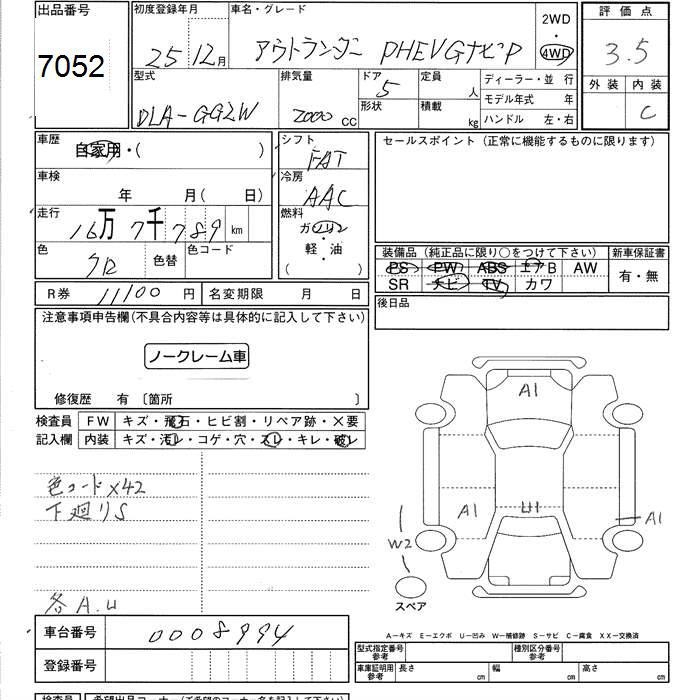 出品番号
7052
初度登録年月
25 12月
車名・グレード
アウトランダー PHEV GナビP
2WD
・
4WD
評価点
3.5
外装 内装
C
型式
DLA-GG2W
排気量
2000 cc
ドア 5
形状
定員 人
積載 kg
ディーラー・並 行
モデル年式 年
ハンドル 左・右
車歴
自家用・( )
車検
年 月( 日)
走行
16万7千789 km
色
クロ
色替
色コード
R券 11100 円
名変期限 月 日
シフト
FAT
冷房
AAC
燃料
ガソリン
軽・油
( )
セールスポイント(正常に機能するものに限ります)
装備品(純正品に限り○をつけて下さい)
PS PW ABS エアB AW
SR ナビ TV カワ
新車保証書
有・無
後日品
注意事項申告欄(不具合内容等は具体的に記入して下さい)
ノークレーム車
修復歴 有〔箇所 〕
検査員
記入欄
FW キズ・飛石・ヒビ割・リペア跡・×要
内装 キズ・汚レ・コゲ・穴・スレ・キレ・破レ
色コード X42
下廻りS
各A.U
A1
A1
U1
A1
W2
スペア
A−キズ E−エクボ U−凹み W−補修跡 S−サビ C−腐食 XX−交換済
車台番号 0008994
登録番号
型式指定番号
参考
種別区分番号
参考
車庫証明用
参考
長さ cm
幅 cm
高さ cm
検査員
希望出品コーナー(ご希望のコーナー名を記入下さい)